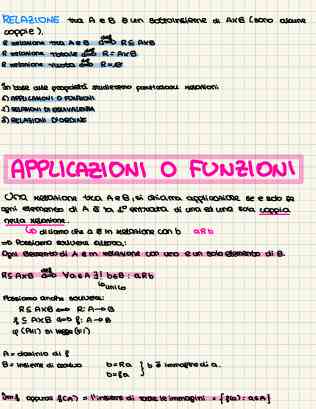 RELAZIONE tra A e B è un sottoinsieme di A×B (sono alcune
coppie).
R relazione tra A e B ⇔ R ⊆ A×B
R relazione totale ⇔ R = A×B
R relazione vuota ⇔ R = Ø
In base alle proprietà studieremo particolari relazioni:
1) APPLICAZIONI O FUNZIONI
2) RELAZIONI DI EQUIVALENZA
3) RELAZIONI D'ORDINE
APPLICAZIONI O FUNZIONI
Una relazione tra A e B, si chiama applicazione se e solo se
ogni elemento di A è la 1° entrata di una ed una sola coppia
nella relazione.
↳ diciamo che a è in relazione con b aRb
⇒ Possiamo scrivere allora:
Ogni elemento di A è in relazione con uno e un solo elemento di B.
R ⊆ A×B ⇔ ∀a∈A ∃! b∈B : aRb
↳ unico
Possiamo anche scrivere:
R ⊆ A×B ⇔ R: A→B
f ⊆ A×B ⇔ f: A→B
A = dominio di f
B = insieme di
b = Ra } b è immagine di a.
b = fa
Im f oppure f(A) = l'insieme di tutte le immagini = {f(a) : a∈A}